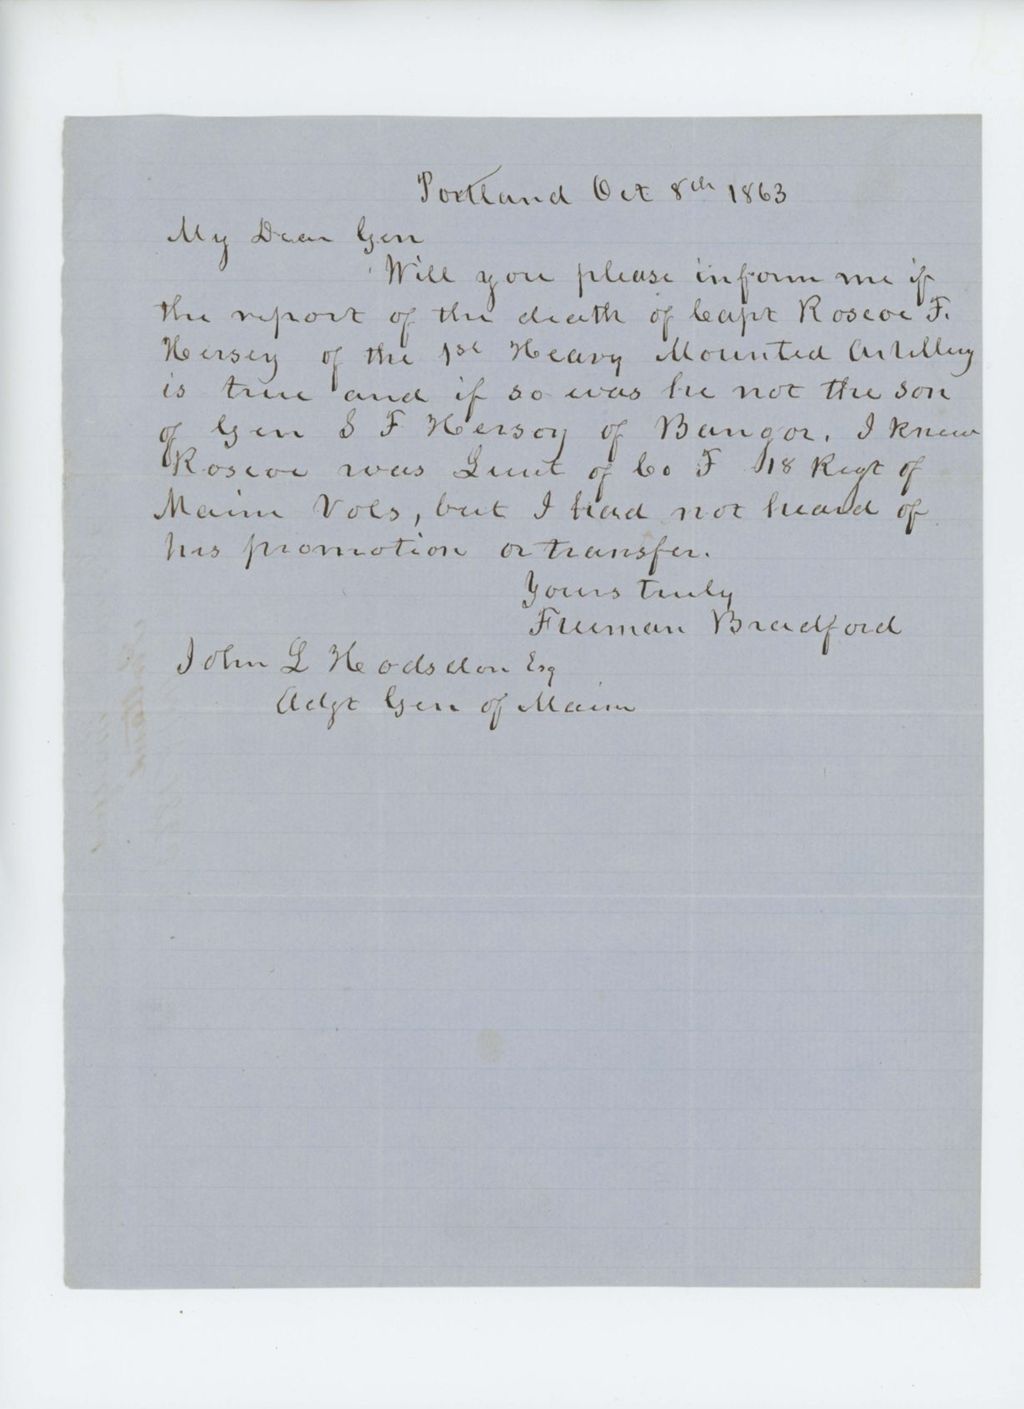 Portland Oct 8th 1863
My Dear Gen
Will you please inform me if
the report of the death of Capt Roscoe F.
Hersey of the 1st Heavy Mounted Artillery
is true and if so was he not the son
of Gen S F Hersey of Bangor. I knew
Roscoe was Lieut of Co F 18 Regt of
Maine Vols, but I had not heard of
his promotion or transfer.
Yours truly
Freeman Bradford
John L Hodsdon Esq
Adgt Gen of Maine